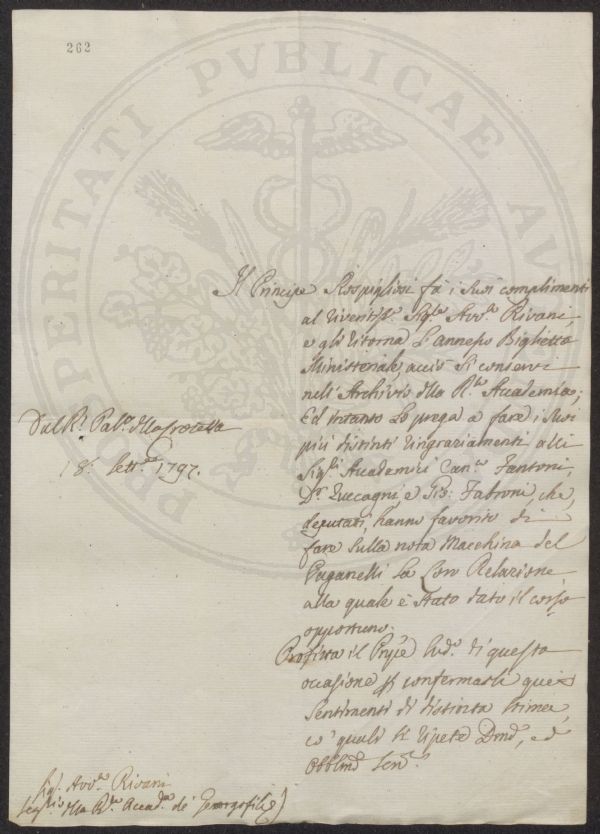 262
PROSPERITATI PUBLICAE AU
Il Principe Rospigliosi fà i Suoi complimenti
al Riveritis.º Sig.re Avv.to Rivani,
e gli ritorna l'annesso Biglietto
Ministeriale, acciò Si conservi
nell'Archivio della R.le Accademia;
Ed intanto Lo prega a fare i Suoi
più distinti ringraziamenti alli
Sig.ri Accademici Can.co Fantoni,
D.r Zuccagni, e Gio: Fabroni, che,
deputati, hanno favorito di
fare Sulla nota Macchina del
Paganelli La Loro Relazione
alla quale è Stato dato il corso
opportuno.
Dal R. Pal.º della Crocetta
18. Sett.e 1797.
Profitta il Pnpe Sud.º di questa
occasione p confermarli quei
Sentimenti di distinta Stima
co' quali Si ripete Dmo, ed
Obblmo Ser.e
Sig. Avv.to Rivani
Seg.rio della R.le Accad.a de' Georgofili